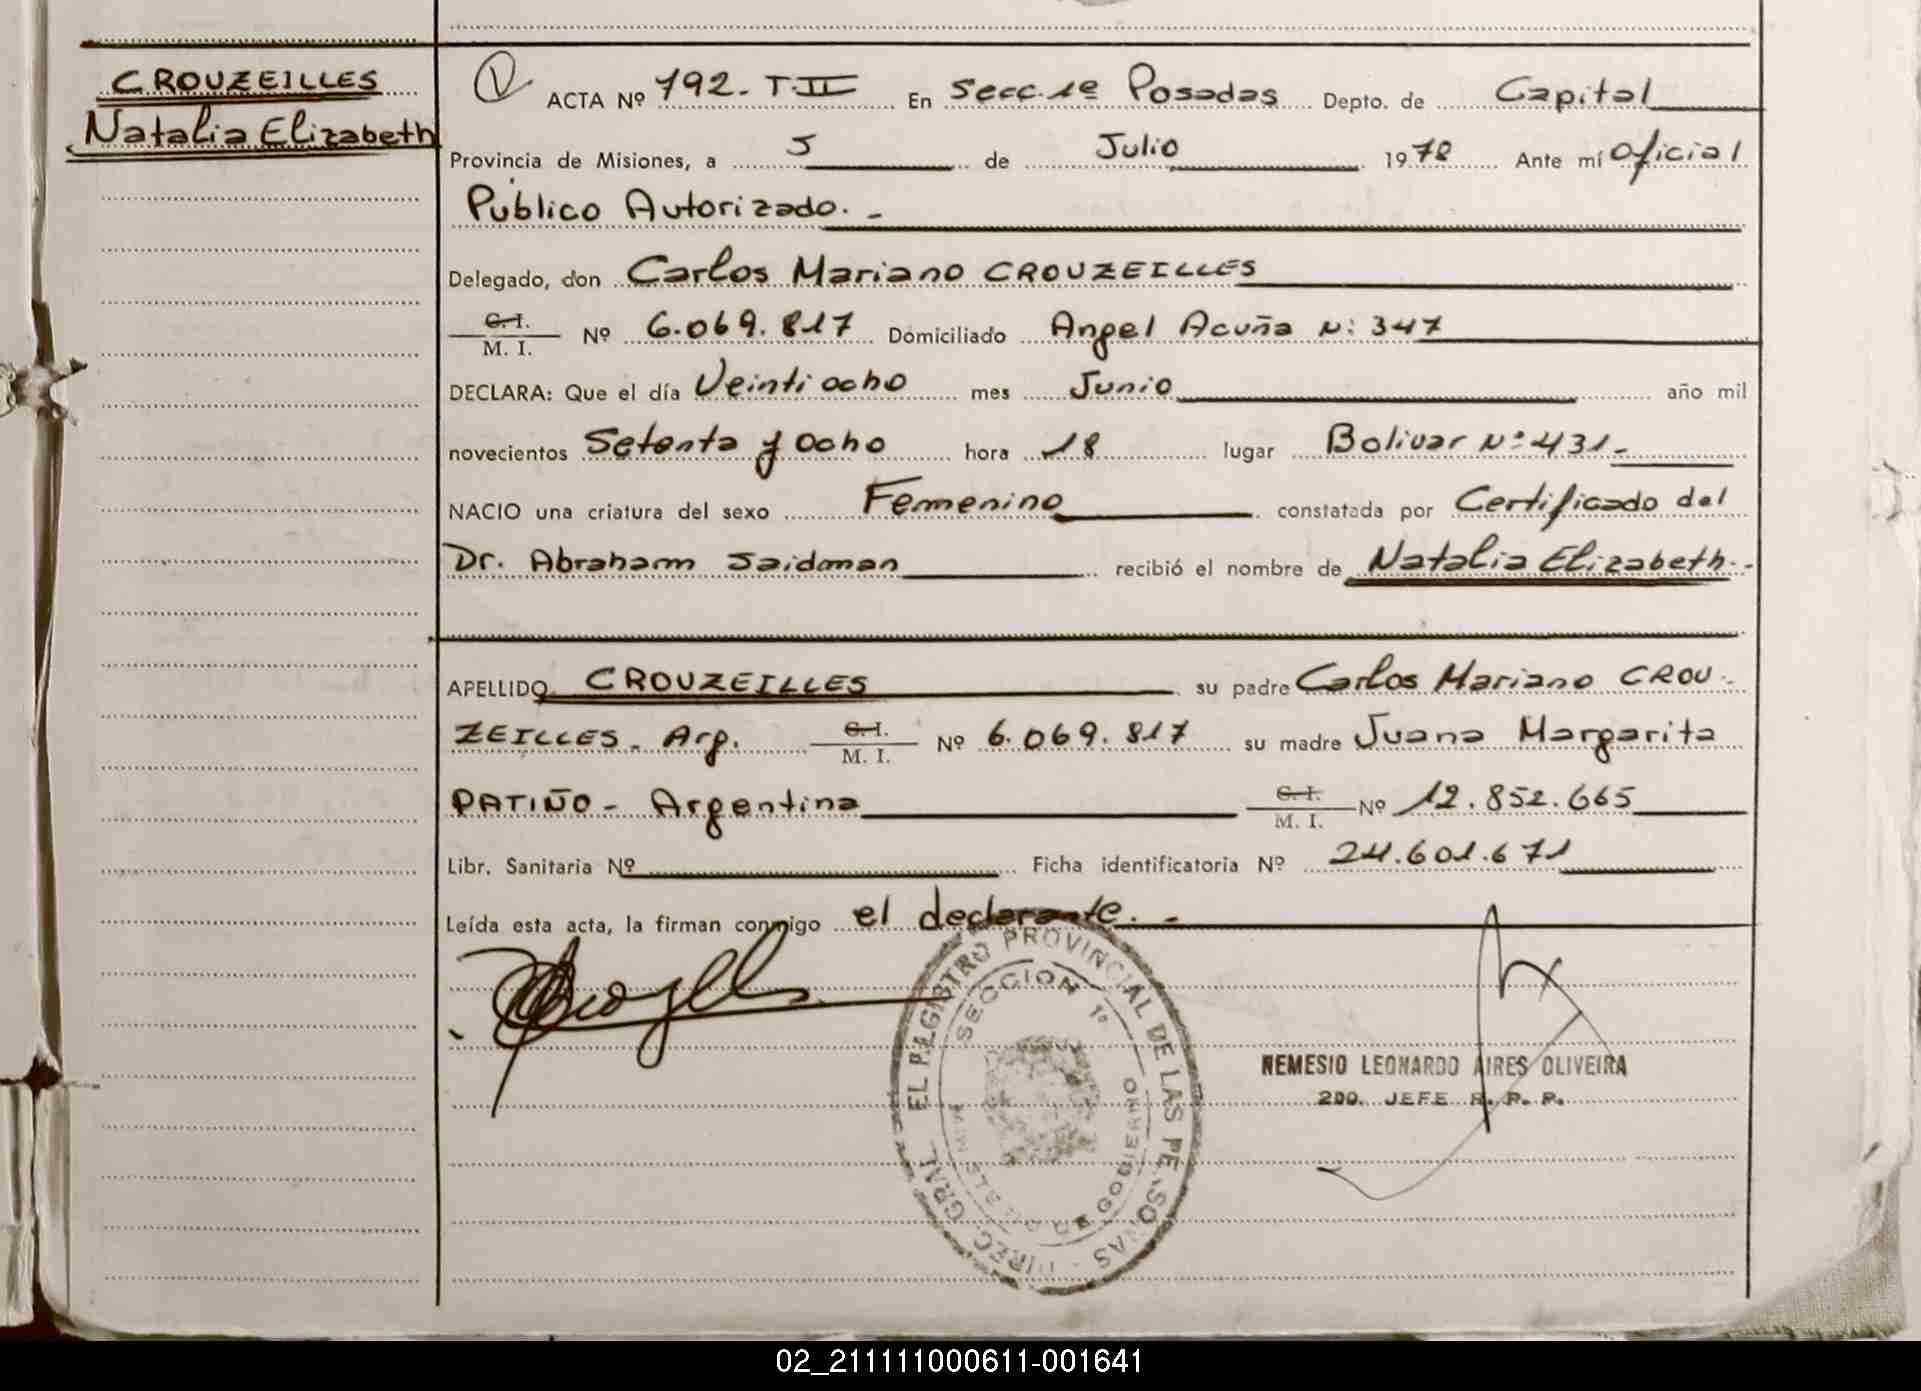 CROUZEILLES
Natalia Elizabeth
ACTA Nº 792. T.II En Secc. 1º Posadas Depto. de Capital
Provincia de Misiones, a 5 de Julio 1978 Ante mí Oficial
Público Autorizado. -
Delegado, don Carlos Mariano CROUZEILLES
C. I.
M. I. Nº 6.069.817 Domiciliado Angel Acuña Nº 347
DECLARA: Que el día Veintiocho mes Junio año mil
novecientos Setenta y Ocho hora 18 lugar Bolivar Nº 431.-
NACIO una criatura del sexo Femenino constatada por Certificado del
Dr. Abraham Saidman recibió el nombre de Natalia Elizabeth.-
APELLIDO CROUZEILLES su padre Carlos Mariano CROU-
ZEILLES. Arg. C. I. M. I. Nº 6.069.817 su madre Juana Margarita
PATIÑO - Argentina C. I. M. I. Nº 12.852.665
Libr. Sanitaria Nº Ficha identificatoria Nº 24.601.671
Leída esta acta, la firman conmigo el declarante. -
DIREC. GRAL. DEL REGISTRO PROVINCIAL DE LAS PERSONAS
SECCION 1º
GOBIERNO
NEMESIO LEONARDO AIRES OLIVEIRA
2DO. JEFE R. P. P.
02_211111000611-001641